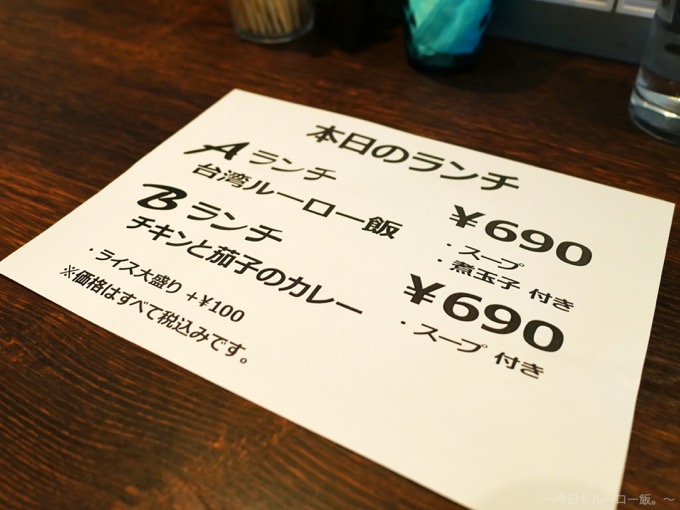 本日のランチ
Aランチ
台湾ルーロー飯 ¥690
・スープ
・煮玉子 付き
Bランチ
チキンと茄子のカレー ¥690
・スープ 付き
・ライス大盛り +¥100
※価格はすべて税込みです。
～今日もルーロー飯。～